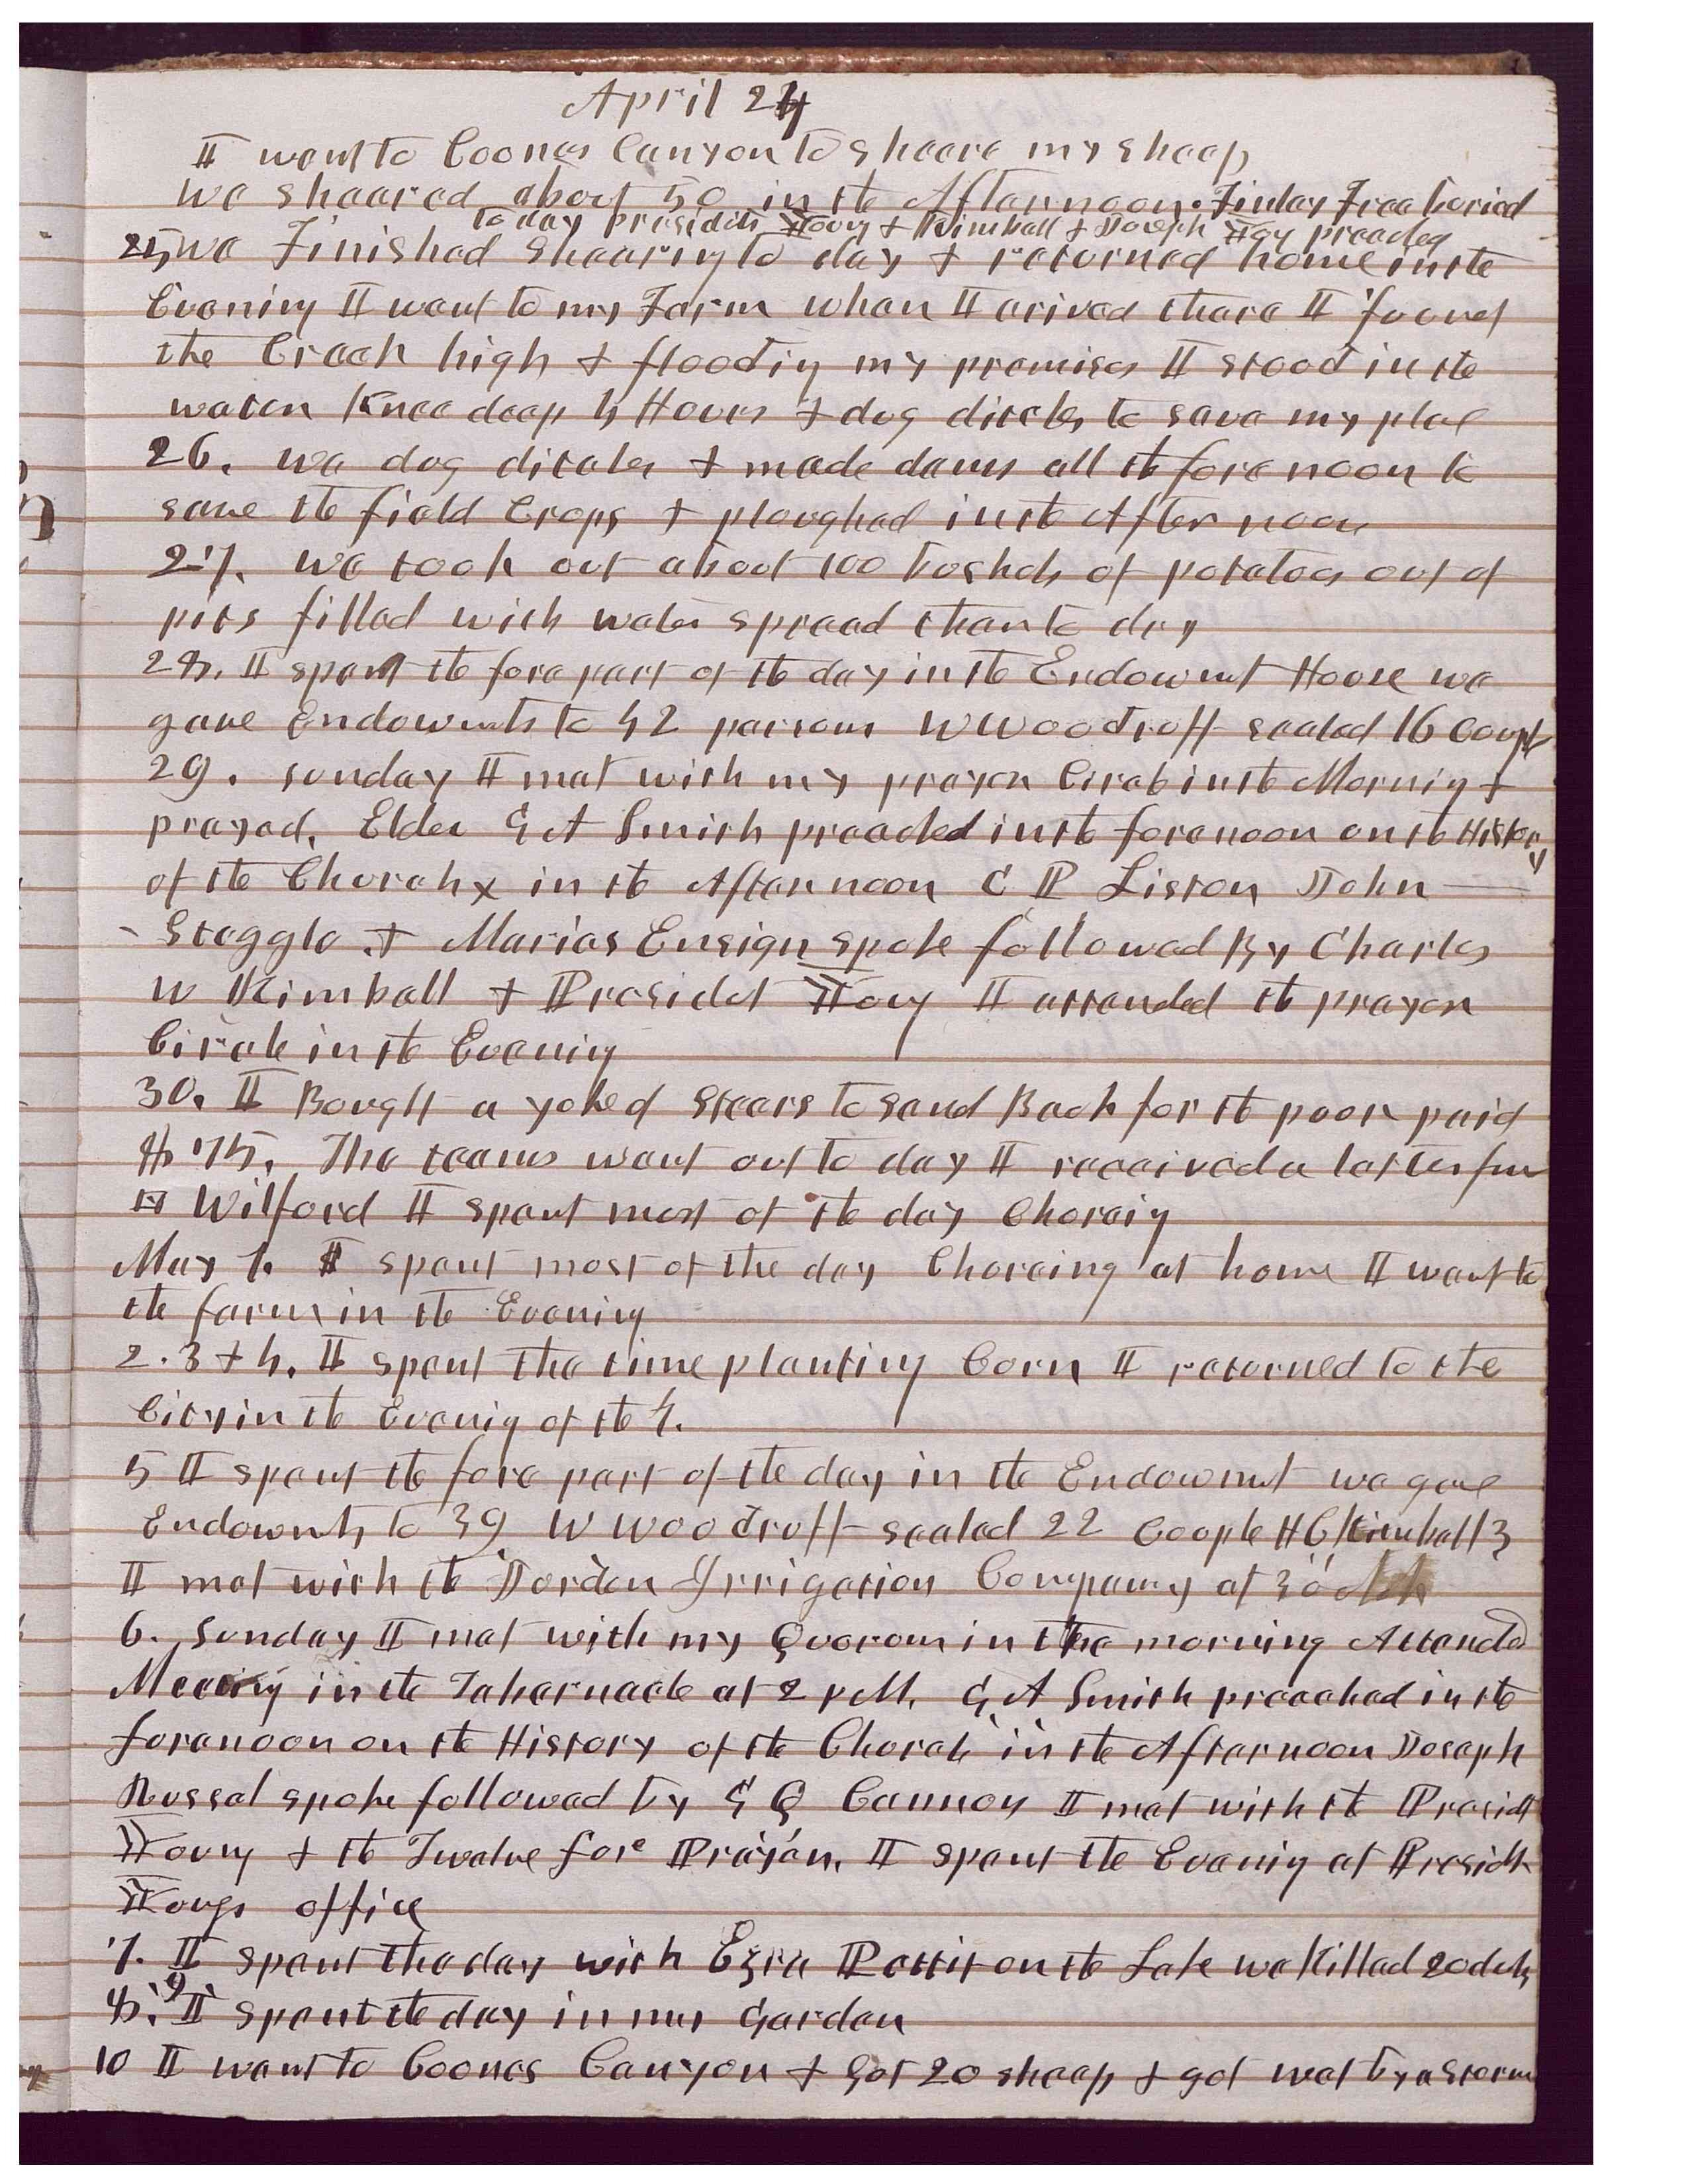 April 24
I went to Coones Canyon to sheere my sheep
we sheared about 50 in the Afternoon. Finley Free buried
to day presidets Young & Kimball & Joseph Young preached
25 we Finished shearing to day & returned home in the
Evening I went to my Farm when I arived there I found
the Creek high & floodig my premises I stood in the
water Knee deep 4 Hours & dug ditches to save my place
26. we dug ditches & made dams all the fore noon to
save the field Crops & ploughed in the After noon
27. we took out about 100 bushels of potatoes out of
pits filled with water spread them to dry
28. I spent the fore part of the day in the Endowmt House we
gave Endowmts to 42 persons W Woodruff sealed 16 Coupl
29. sunday I met with my prayer Circl in the Mornig &
prayed. Elder G A Smith preached in the forenoon on the History
of the Church & in the Afternoon C P Liston John
Steggle & Marius Ensign spoke followed By Charles
W Kimball & Presidet Young I attended the prayer
Circle in the Evenig
30. I Bought a yoke of Steers to send Back for the poor paid
$75. The teams went out to day I received a letter from
Wilford I spent most of the day Choreig
May 1. I spent most of the day Choreing at home I went to
the farm in the Evening
2. 3 & 4. I spent the time planting Corn I returned to the
City in the Evenig of the 4.
5 I spent the fore part of the day in the Endowmt we gave
Endowmts to 39 W Woodruff sealed 22 Couple H C Kimball 3
I met with the Jordan Irrigation Company at 3 oclok
6. Sunday I met with my Quorum in the morning Attended
Meetig in the Tabernacle at 2 PM. G A Smith preached in the
forenoon on the History of the Church in the Afternoon Joseph
Russel spoke followed by G Q Cannon I met with the Presidt
Young & the Twelve for Prayer. I spent the Evenig at Presidt
Youngs office
7. I spent the day with Ezra Pettit on the Lake we Killed 20 ducks
8. 9 I spent the day in my Garden
10 I went to Coones Canyon & got 20 sheep & got wet by a Storm